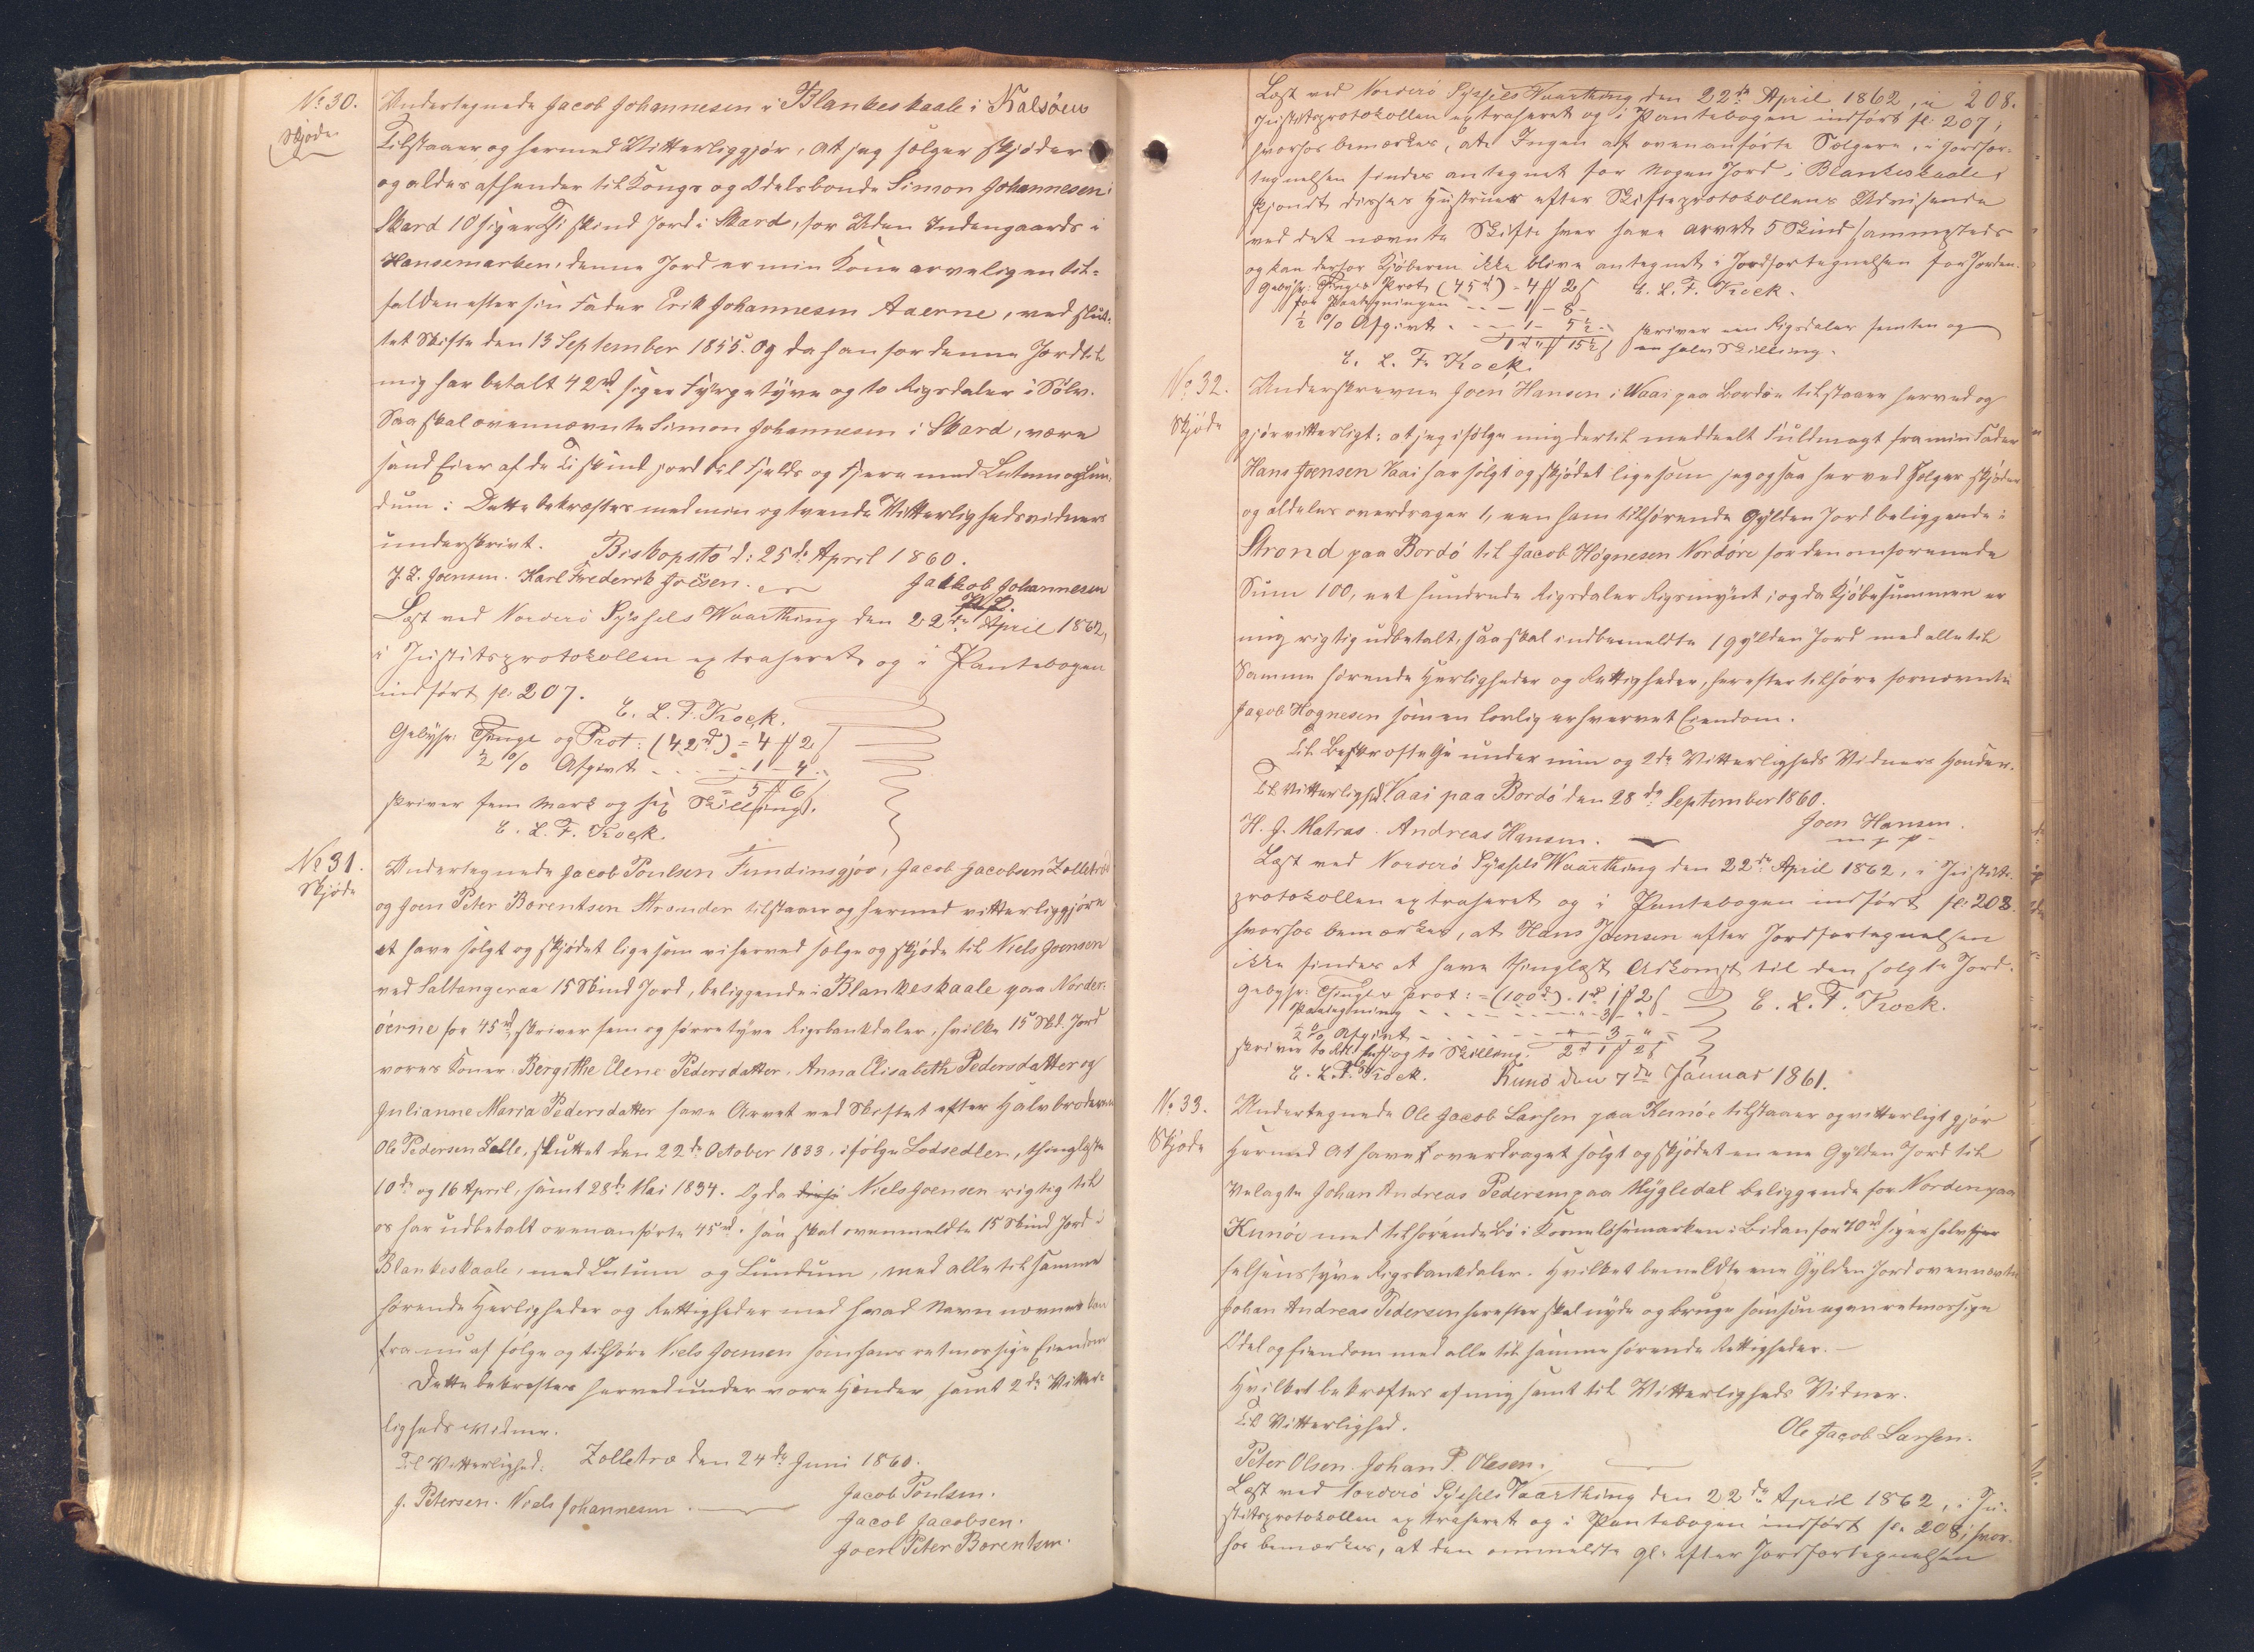 No 30.
Skjøde
Undertegnede Jacob Johannesen i Blankeskaale i Kalsöen
Tilstaaer og hermed Vitterliggjør, at jeg sælger skjøder
og aldes afhender til Kongs og Odelsbonde Simon Johannesen i
Skard 10 siger Ti skind Jord i Skard, for Uden Indengaards i
Hansemarken, denne Jord er min Kone arveligen til-
falden efter sin Fader Erik Johannesen Aaerne, ved slut-
tet Skifte den 13 September 1855. Og da han for denne Jord til
mig har betalt 42rd siger Fyrgetyve og to Rigsdaler i Sölv.
Saa skal ovennævnte Simon Johannesen i Skard, være
sand Eier af de Ti skind jord til Fjelds og Fjere med Lutum og Lun-
dum: Dette bekræftes med min og tvende Vitterlighedsvidners
underskrivt. Biskopstö d: 25de April 1860.
J. L. Joensen. Karl Frederik Joensen. Jakob Johannesen
Læst ved Norderö Syssels Vaarthing den 22de April 1862,
i Justitsprotokollen extraheret og i Pantebogen
indført fl. 207. E. L. F. Kock.
Gebyhr: Thingl og Prot: (42rd) = 4 # 2 s
½ % Afgivt - - - 1 - 4 -
= 5 # 6 s
skriver fem Mark og sex Skilling.
E. L. F. Kock.
No 31.
Skjøde
Undertegnede Jacob Poulsen Fundinsgjov, Jacob Jacobsen Zolletrö
og Joen Peter Borentsen Strender tilstaaer og hermed vitterliggjøre
at have solgt og skjødet ligesom vi herved sælge og skjøde til Niels Joensen
ved Saltangeraa 15 Skind Jord, beliggende i Blankeskaale paa Norder-
öerne for 45rd skriver fem og førretyve Rigsbankdaler, hvilke 15 Skd. Jord
vores Koner: Bergithe Elene Pedersdatter, Anna Elisabeth Pedersdatter og
Julianne Maria Pedersdatter have Arvet ved Skiftet efter Halvbroderen
Ole Pedersen Zolle, sluttet den 22de October 1833, ifølge Lodsedler, thinglæste
10de og 16 April, samt 28de Mai 1834. Og da Niels Joensen rigtig til
os har udbetalt ovenanførte 45rd. saa skal ovenmeldte 15 Skind Jord i
Blankeskaale, med Lutum og Lundum, med alle til samme
hørende Herligheder og Rettigheder med hvad Navn nævnes kan
fra nu af følge og tilhøre Niels Joensen som hans retmæssige Eiendom
Dette bekræftes herved under vore Hænder samt 2de Vitter-
ligheds Vidner.
Til Vitterlighed: Zolletrø den 24de Juni 1860.
J. Petersen. Niels Johannesen. Jacob Poulsen.
Jacob Jacobsen.
Joen Peter Borentsen.
Læst ved Norderö Syssels Vaarthing den 22de April 1862, i 208.
Justitsprotokollen extraheret og i Pantebogen indført fl: 207,
hvorhos bemærkes, at Ingen af ovenanførte Sælgere, i Jordfor-
tegnelsen findes antegnet for nogen Jord i Blankeskaale,
skjøndt disses Hustruer efter Skifteprotokollens Udvisende
ved det nævnte Skifte hver have arvet 5 Skind sammesteds
og kan derfor Kjøberen ikke blive antegnet i Jordfortegnelsen for Jorden.
Gebyhr: Thingl Prot (45rd) - 4 # 2 s E. L. F. Kock.
for Paategningen - - - 1 - 8 -
½ % Afgivt - - - 1 - 5½ - skriver een Rigsdaler femten og
1rd " # 15½ s en halv Skilling.
E. L. F. Kock.
No 32.
Skjøde
Underskrevne Joen Hansen i Waai paa Bordöe tilstaaer herved og
gjør vitterligt: at jeg ifølge mig dertil meddeelt Fuldmagt fra min Fader
Hans Joensen Vaai har solgt og skjødet ligesom jeg ogsaa herved sælger skjøder
og aldeles overdrager 1, een ham tilhørende Gylden Jord beliggende i
Strond paa Bordö til Jacob Högnesen Nordöre for den omforenede
Sum 100, eet hundrede Rigsdaler Rigsmynt; og da Kjöbesummen er
mig rigtig udbetalt, saa skal indbemeldte 1 Gylden Jord med alle til
Samme hørende Herligheder og Rettigheder, herefter tilhøre fornævnte
Jacob Högnesen som en lovlig erhvervet Eiendom.
Til Bekræftelse under min og 2de Vitterligheds Vidners Hænder.
Til Vitterlighed Vaai paa Bordö den 28de September 1860.
H. J. Matras. Andreas Hansen. Joen Hansen.
m. p. p.
Læst ved Norderö Syssels Vaarthing den 22de April 1862, i Justits-
protokollen extraheret og i Pantebogen indført fl: 208.
hvorhos bemærkes, at Hans Joensen efter Jordfortegnelsen
ikke findes at have thinglæst Adkomst til den solgte Jord.
Gebyhr: Thingl & Prot: = (100rd). 1rd 1 # 2 s E. L. F. Kock.
Paategning - - - - - 3 - " -
½ % Afgivt - - - - " - 3 - " -
skriver to Rdl og to Skilling. 2rd 1 # 2 s
E. L. F. Kock. Kunö den 7de Januar 1861.
No. 33.
Skjøde
Undertegnede Ole Jacob Larsen paa Kunöe tilstaaer og vitterligt gjør
Hermed At have overdraget solgt og skjødet en ene Gylden Jord til
Velagte Johan Andreas Pedersen paa Mygledal beliggende for Norden paa
Kunöe med tilhørende Bö i Bidan for 70rd siger halv fjer
Rigsbankdaler. Hvilket bemeldte ene Gylden Jord ovennævnte
Johan Andreas Pedersen herefter skal nyde og bruge som sin egen retmæssige
Odel og Eiendom med alle til samme hørende Rettigheder. -
Hvilket bekræftes af mig samt til Vitterligheds Vidner.
Til Vitterlighed. Ole Jacob Larsen.
Peter Olsen. Johan P. Olesen.
Læst ved Norderö Syssels Vaarthing den 22de April 1862, i Ju-
stitsprotokollen extraheret og i Pantebogen indført fl. 208; hvor-
hos bemærkes, at den ommeldte Gl: efter Jordfortegnelsen